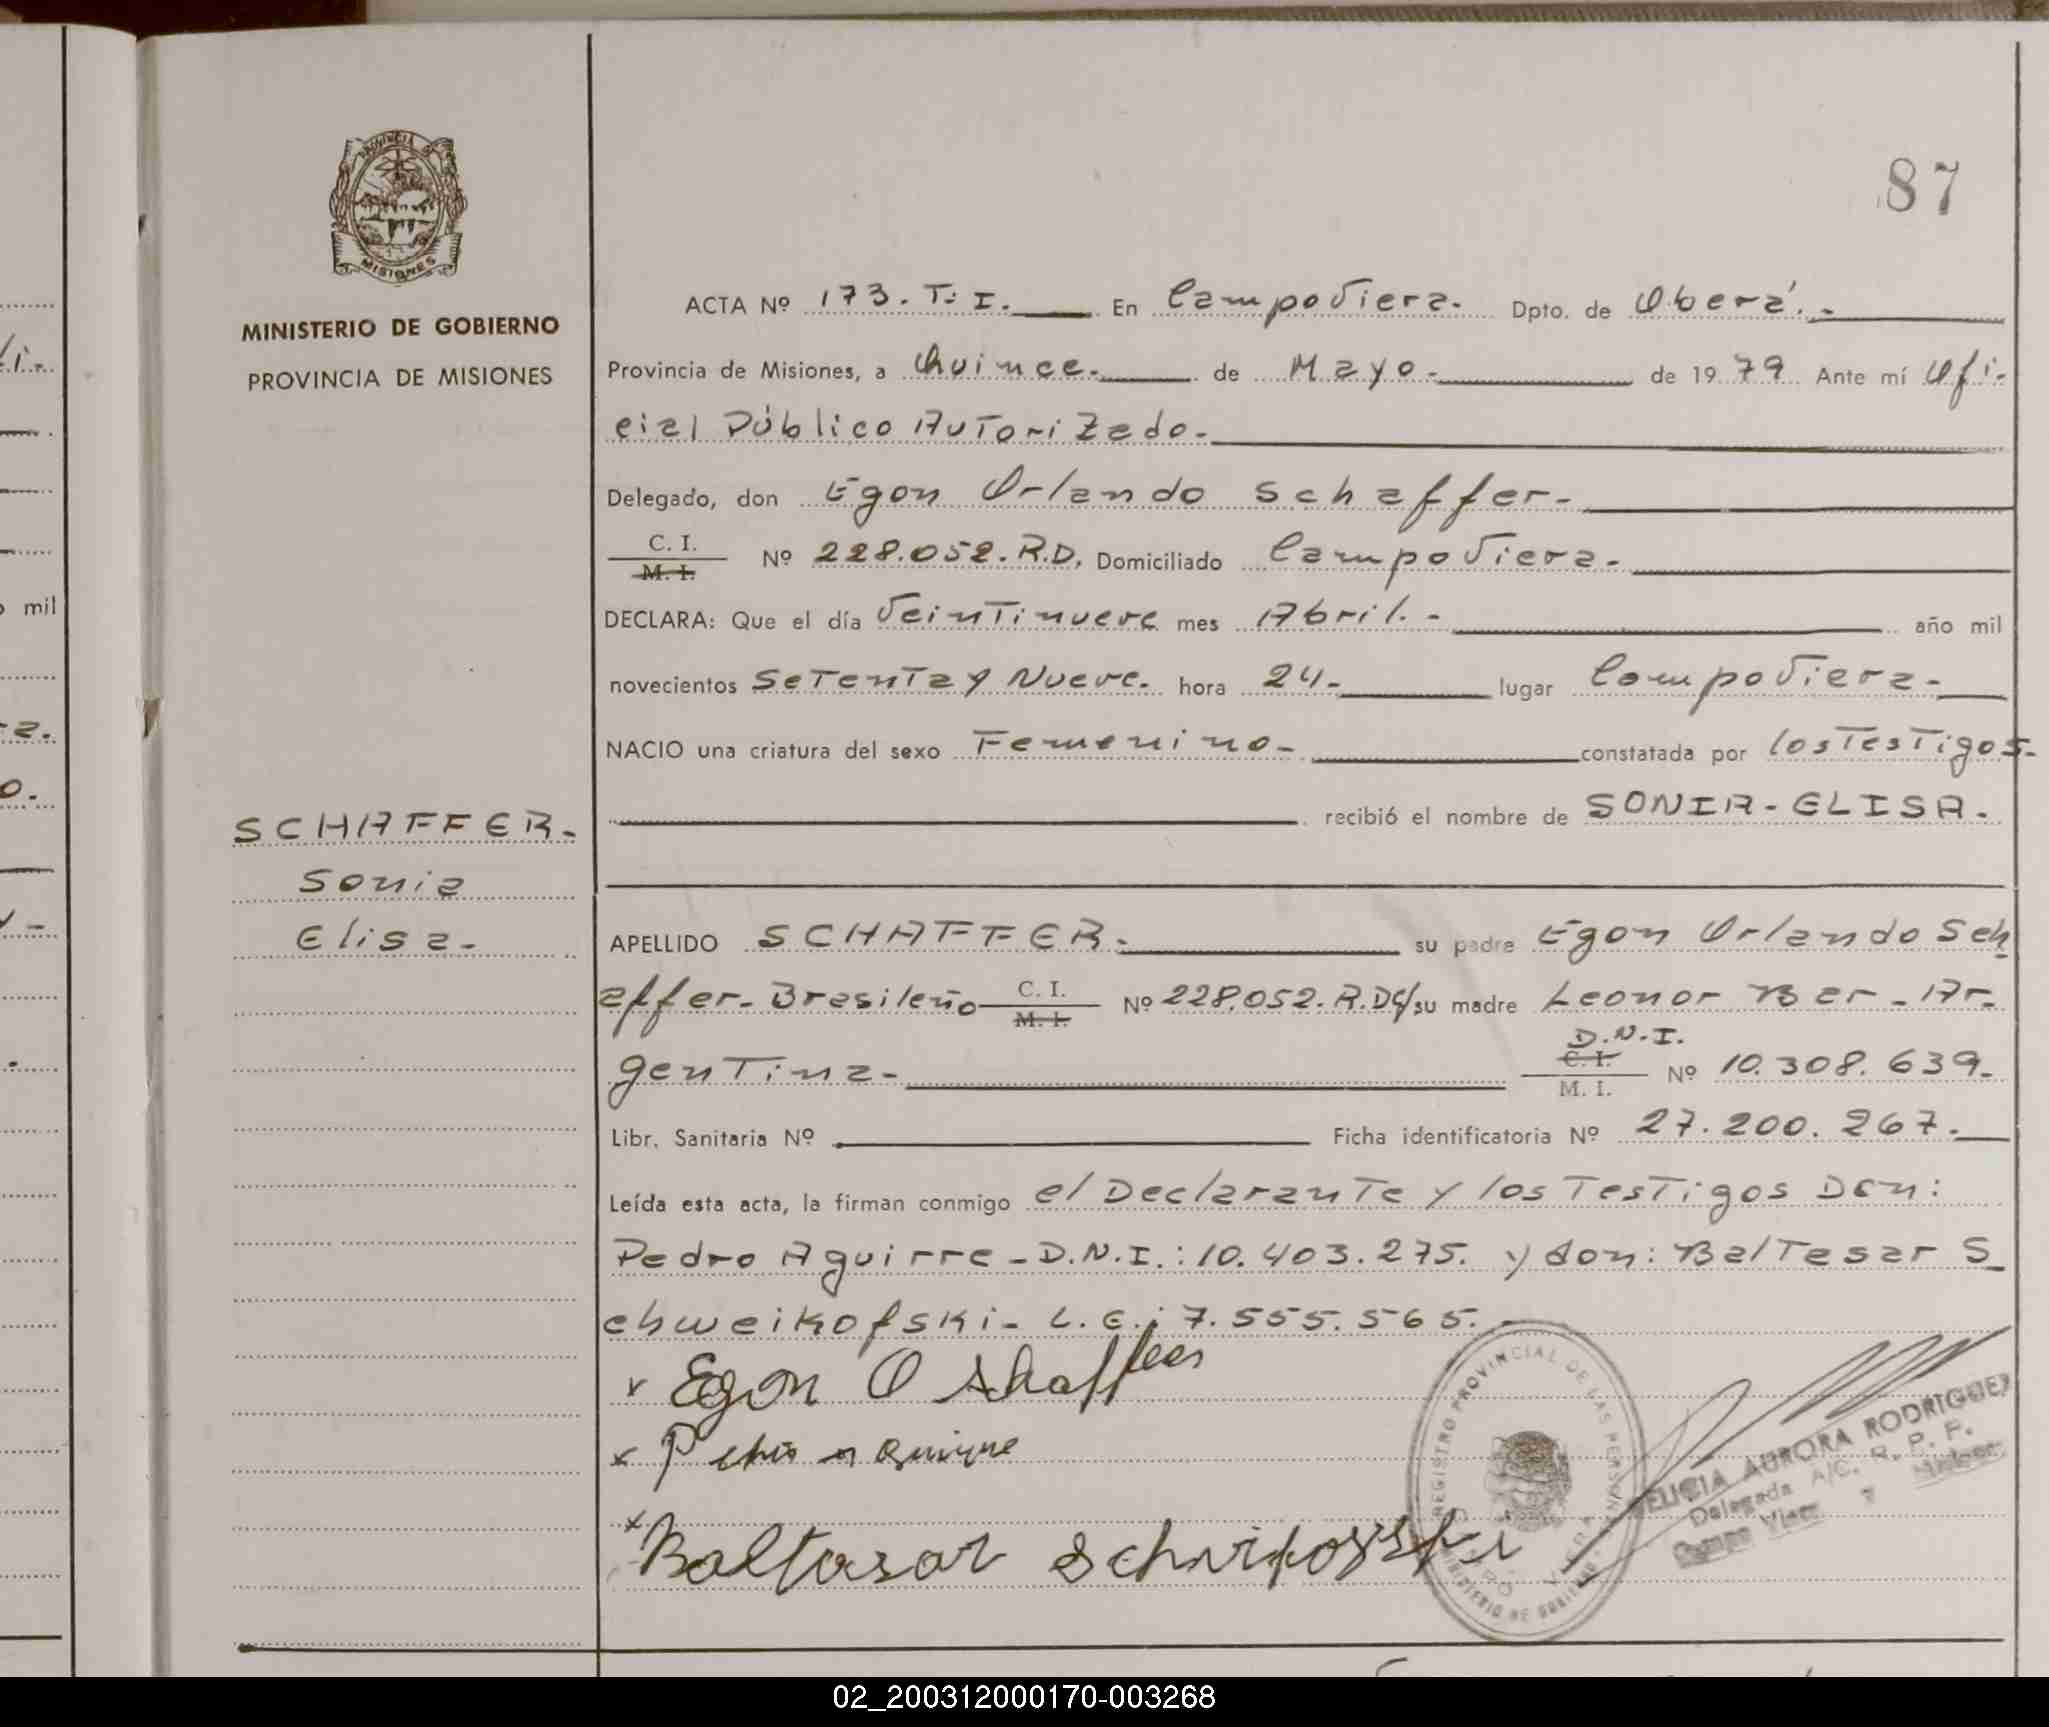 PROVINCIA DE
MISIONES
MINISTERIO DE GOBIERNO
PROVINCIA DE MISIONES
SCHAFFER.-
Sonia
Elisa.-
87
ACTA Nº 173. T: I. En Campo Viera. Dpto. de Oberá.-
Provincia de Misiones, a Quince.- de Mayo.- de 1979 Ante mí Ofi-
cial Público Autorizado.-
Delegado, don Egon Orlando Schaffer.-
C. I.
M. I.
Nº 228.052. R.D. Domiciliado Campo Viera.-
DECLARA: Que el día Veintinueve mes Abril.- año mil
novecientos Setenta y Nueve. hora 24.- lugar Campo Viera.-
NACIO una criatura del sexo Femenino.- constatada por los Testigos.-
recibió el nombre de SONIA-ELISA.
APELLIDO SCHAFFER.- su padre Egon Orlando Sch
affer- Brasileño C. I. M. I. Nº 228.052. R.D y su madre Leonor Ber - Ar-
gentina.- D.N.I. C. I. M. I. Nº 10.308.639.-
Libr. Sanitaria Nº Ficha identificatoria Nº 27.200.267.
Leída esta acta, la firman conmigo el Declarante y los Testigos Don:
Pedro Aguirre - D.N.I.: 10.403.275. y don: Baltasar S
chweikofski - L.E.: 7.555.565.-
Egon O Shaffer
Baltasar
REGISTRO PROVINCIAL DE LAS PERSONAS
MINISTERIO DE GOBIERNO
CAMPO VIERA
FELICIA AURORA RODRIGUEZ
Delegada A/C. R. P. P.
Campo Viera Misiones
mil
02_200312000170-003268